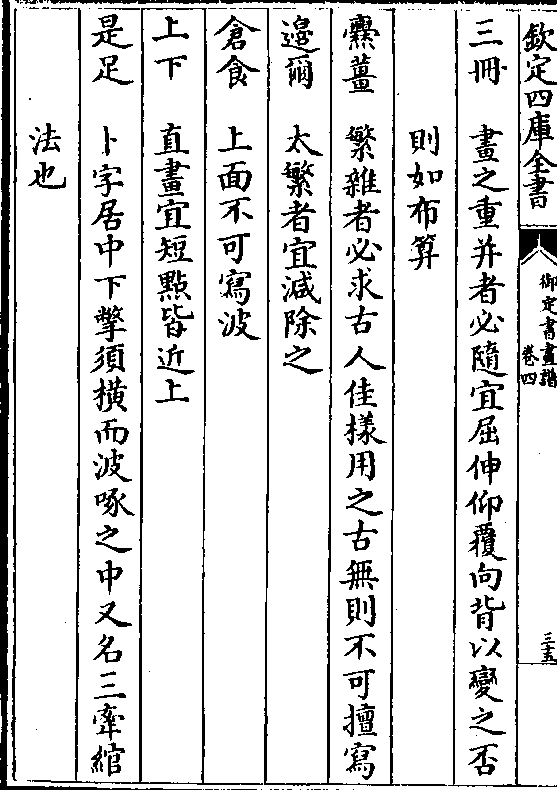 欽定四庫全書
御定書畫譜
卷四
三五
三冊　畫之重并者必隨宜屈伸仰覆向背以變之否
則如布算
爨薑　繁雜者必求古人佳樣用之古無則不可擅寫
邉爾　太繁者宜减除之
倉食　上面不可寫波
上下　直畫宜短㸃皆近上
是足　卜字居中下撆須横而波啄之中又名三牽綰
法也